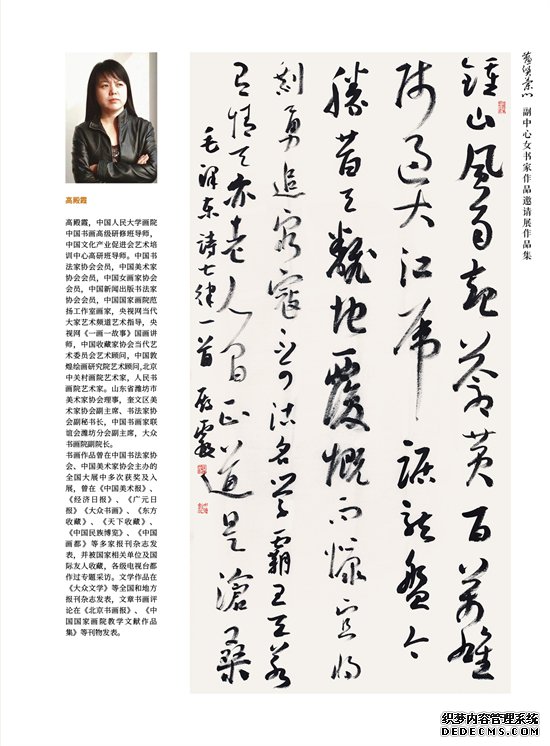 副中心女书家作品邀请展作品集
鍾山風雨起蒼黄百萬雄
師過大江虎踞龍盤今
勝昔天翻地覆慨而慷宜將
剩勇追窮寇不可沽名学霸王天若
有情天亦老人間正道是滄桑
毛澤东诗七律一首 殿霞
高殿霞
高殿霞，中国人民大学画院
中国书画高级研修班导师，
中国文化产业促进会艺术培
训中心高研班导师。中国书
法家协会会员，中国美术家
协会会员，中国女画家协会
会员，中国新闻出版书法家
协会会员，中国国家画院范
扬工作室画家，央视网当代
大家艺术频道艺术指导，央
视网《一画一故事》国画讲
师，中国收藏家协会当代艺
术委员会艺术顾问，中国敦
煌绘画研究院艺术顾问,北京
中关村画院艺术家，人民书
画院艺术家。山东省潍坊市
美术家协会理事，奎文区美
术家协会副主席、书法家协
会副秘书长，中国书画家联
谊会潍坊分会副主席，大众
书画院副院长。
书画作品曾在中国书法家协
会、中国美术家协会主办的
全国大展中多次获奖及入
展，曾在《中国美术报》、
《经济日报》、《广元日
报》《大众书画》、《东方
收藏》、《天下收藏》、
《中国民族博览》、《中国
画都》等多家报刊杂志发
表，并被国家相关单位及国
际友人收藏，各级电视台都
作过专题采访。文学作品在
《大众文学》等全国和地方
报刊杂志发表，文章书画评
论在《北京书画报》、《中
国国家画院教学文献作品
集》等刊物发表。
织梦内容管理系统
DEDECMS.COM